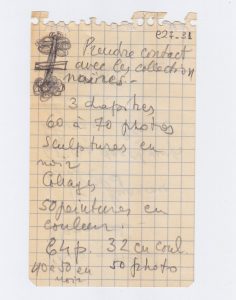 e27-31
Prendre contact
avec les collection
noires.
3 chapitres
60 à 70 photos
Sculptures en
noir
Collages
50 peintures en
couleur.
32 en coul.
40 à 50 en 50 photo
noir